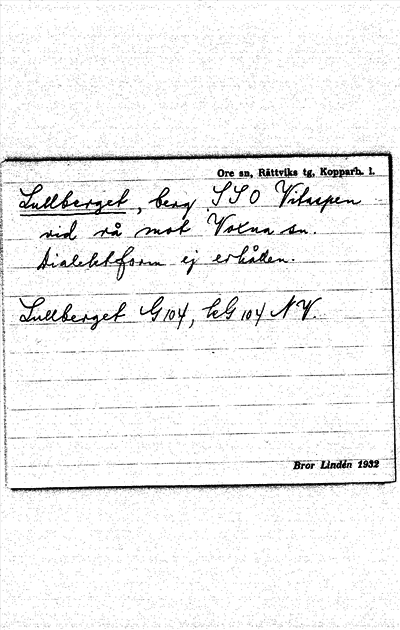 Ore sn, Rättviks tg, Kopparb. l.
Lullberget, berg SSO Vitaspen
vid rå mot Voxna sn.
Dialektform ej erhållen.
Lullberget G 104, kG 104 NV.
Bror Lindén 1932